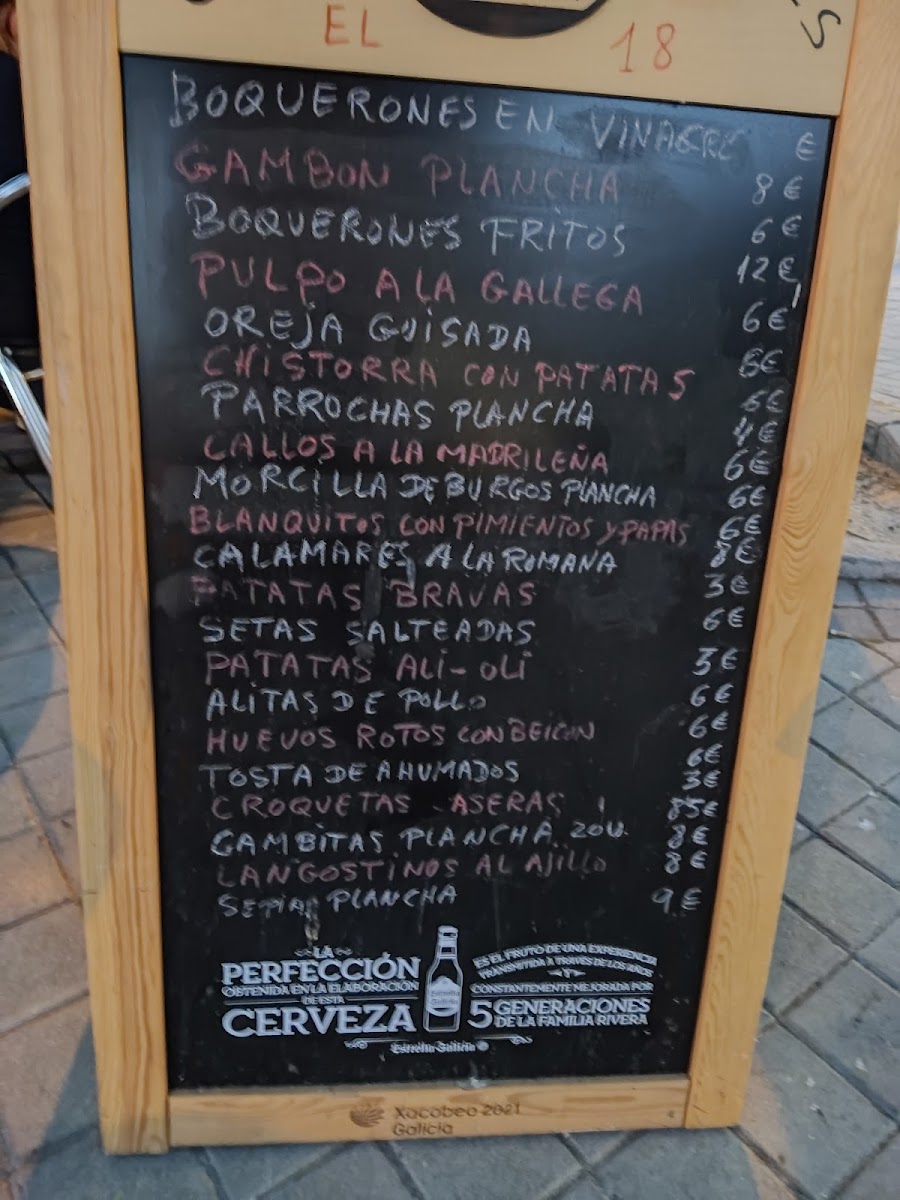 EL 18
BOQUERONES EN VINAGRE €
GAMBON PLANCHA 8€
BOQUERONES FRITOS 6€
PULPO A LA GALLEGA 12€
OREJA GUISADA 6€
CHISTORRA CON PATATAS 6€
PARROCHAS PLANCHA 6€
4€
CALLOS A LA MADRILEÑA 6€
MORCILLA DE BURGOS PLANCHA 6€
BLANQUITOS CON PIMIENTOS Y PAPAS 6€
CALAMARES A LA ROMANA 8€
PATATAS BRAVAS 3€
SETAS SALTEADAS 6€
PATATAS ALI-OLI 3€
ALITAS DE POLLO 6€
HUEVOS ROTOS CON BEICON 6€
6€
TOSTA DE AHUMADOS 3€
CROQUETAS ASERAS 8'5€
GAMBITAS PLANCHA 20U. 8€
LANGOSTINOS AL AJILLO 8€
SEPIA PLANCHA 9€
LA
PERFECCIÓN
OBTENIDA EN LA ELABORACIÓN
DE ESTA
CERVEZA
Estrella Galicia
ES EL FRUTO DE UNA EXPERIENCIA
TRANSMITIDA A TRAVÉS DE LOS AÑOS
Y
CONSTANTEMENTE MEJORADA POR
5 GENERACIONES
DE LA FAMILIA RIVERA
Estrella Galicia
Xacobeo 2021
Galicia